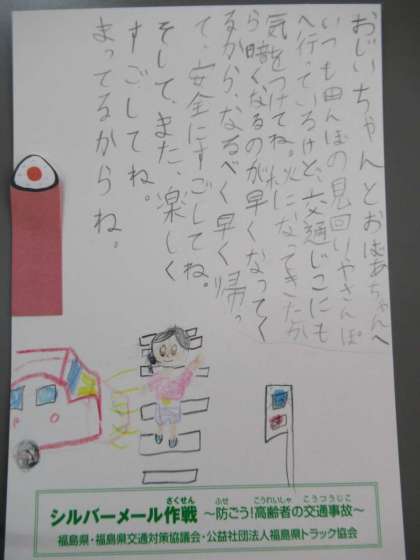 おじいちゃんとおばあちゃんへ
いつも田んぼの見回りやさんぽ
へ行っているけど、交通じこにも
気をつけてね。秋になってきたか
ら暗くなるのが早くなってく
るから、なるべく早く帰っ
て、安全にすごしてね。
そして、また、楽しく
すごしてね。
まってるからね。
シルバーメール作戦 ～防ごう!高齢者の交通事故～
さくせん ふせ こうれいしゃ こうつうじこ
福島県・福島県交通対策協議会・公益社団法人福島県トラック協会